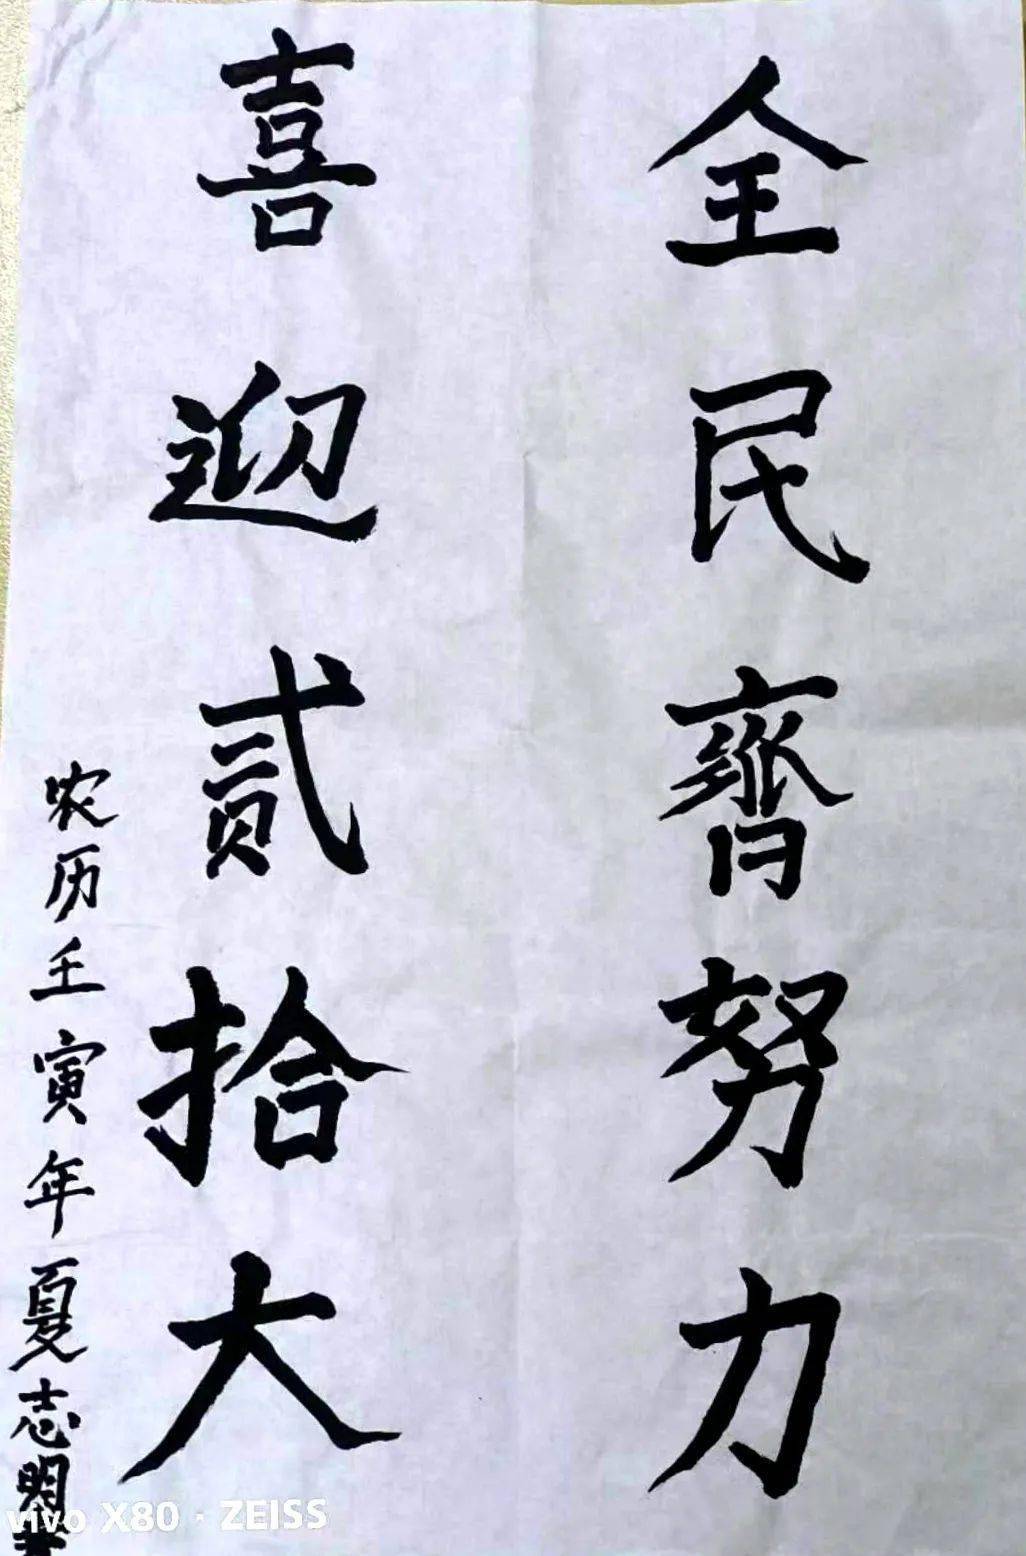 全民齊努力
喜迎贰拾大
农历壬寅年夏志明书
vivo X80 · ZEISS